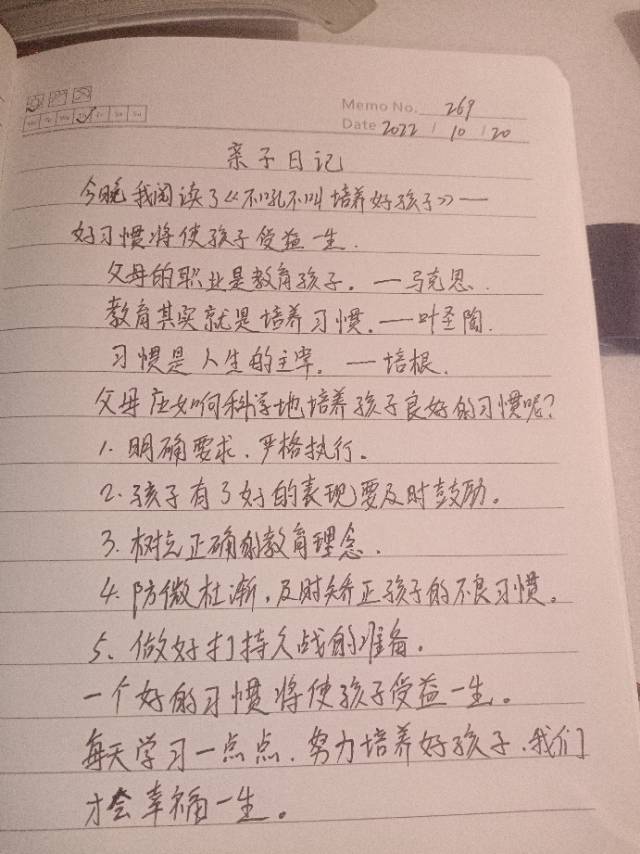 Memo No. 269
Date 2022 / 10 / 20
亲子日记
今晚我阅读了《不吼不叫培养好孩子》—
好习惯将使孩子受益一生.
父母的职业是教育孩子。—马克思.
教育其实就是培养习惯.—叶圣陶.
习惯是人生的主宰. —培根.
父母应如何科学地培养孩子良好的习惯呢?
1. 明确要求.严格执行。
2.孩子有了好的表现要及时鼓励。
3.树立正确的教育理念.
4.防微杜渐,及时矫正孩子的不良习惯。
5、做好打持久战的准备.
一个好的习惯将使孩子受益一生。
每天学习一点点.努力培养好孩子.我们
才会幸福一生。